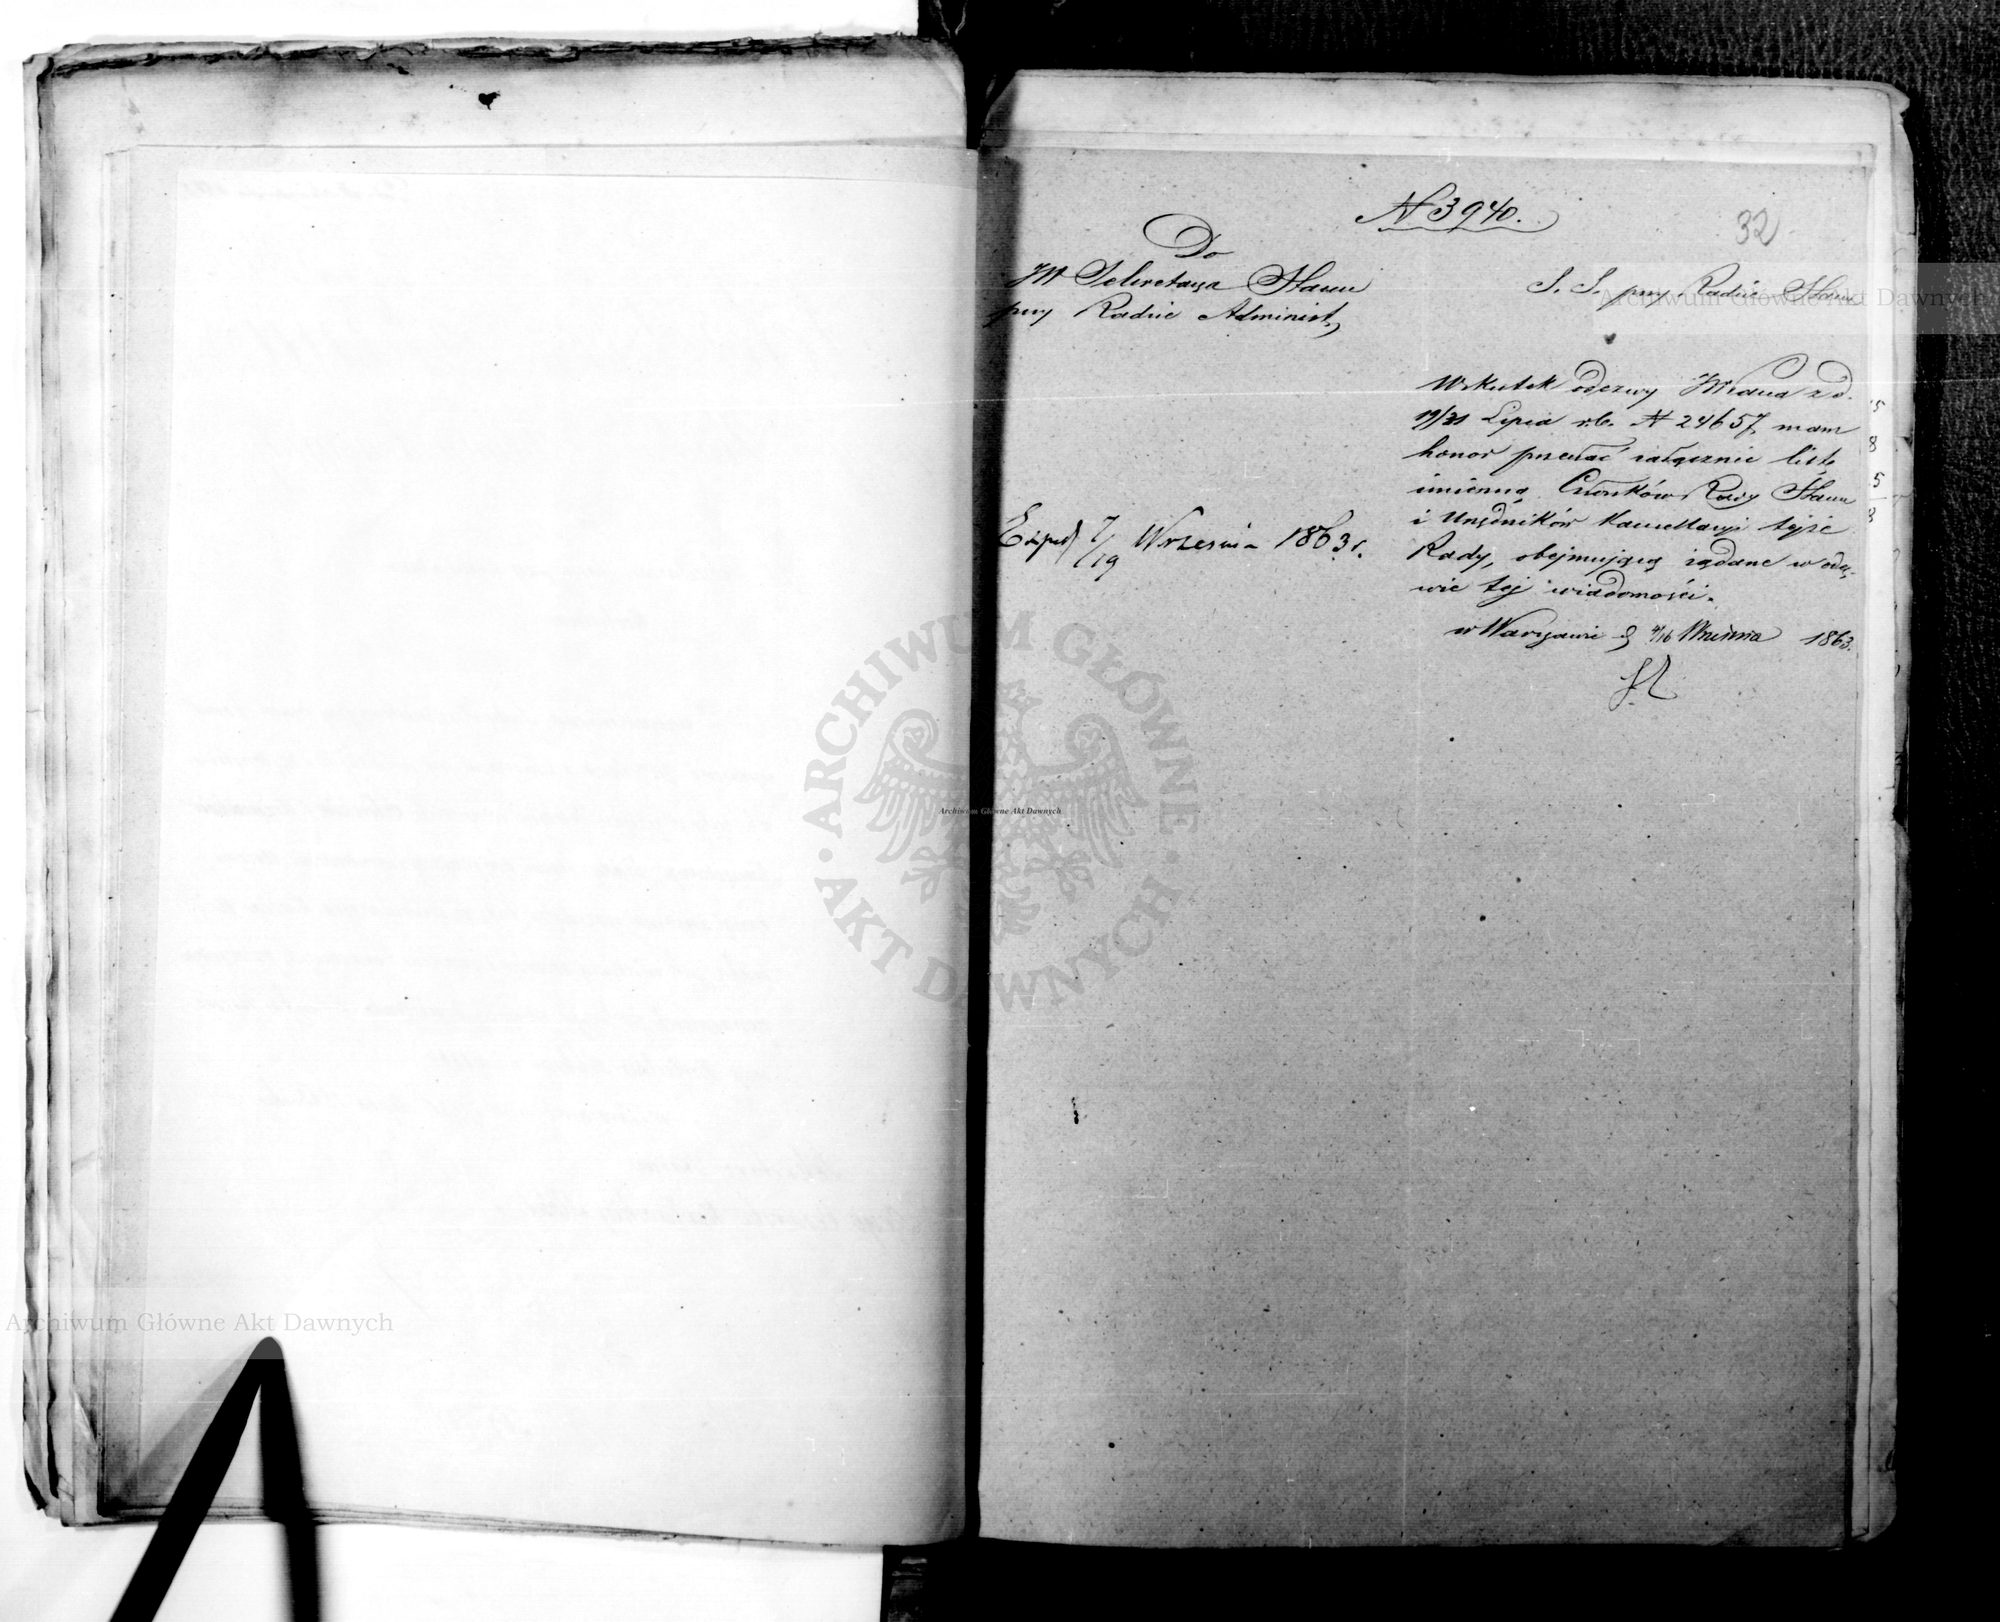 N 3940.
32
Do
JW Sekretarza Stanu
przy Radzie Administ.
S. S. przy Radzie Stanu
Wskutek odezwy JWPana z d.
19/31 Lipca r.b. N 24657, mam
honor przesłać załącznie listę
imienną Członków Rady Stanu
i Urzędników Kancellaryi tejże
Rady, obejmującą żądane w odez-
wie tej wiadomości.
w Warszawie d 4/16 Września 1863.
Exped 7/19 Września 1863 r.
Archiwum Główne Akt Dawnych
ARCHIWUM GŁÓWNE AKT DAWNYCH
Archiwum Główne Akt Dawnych
Archiwum Główne Akt Dawnych